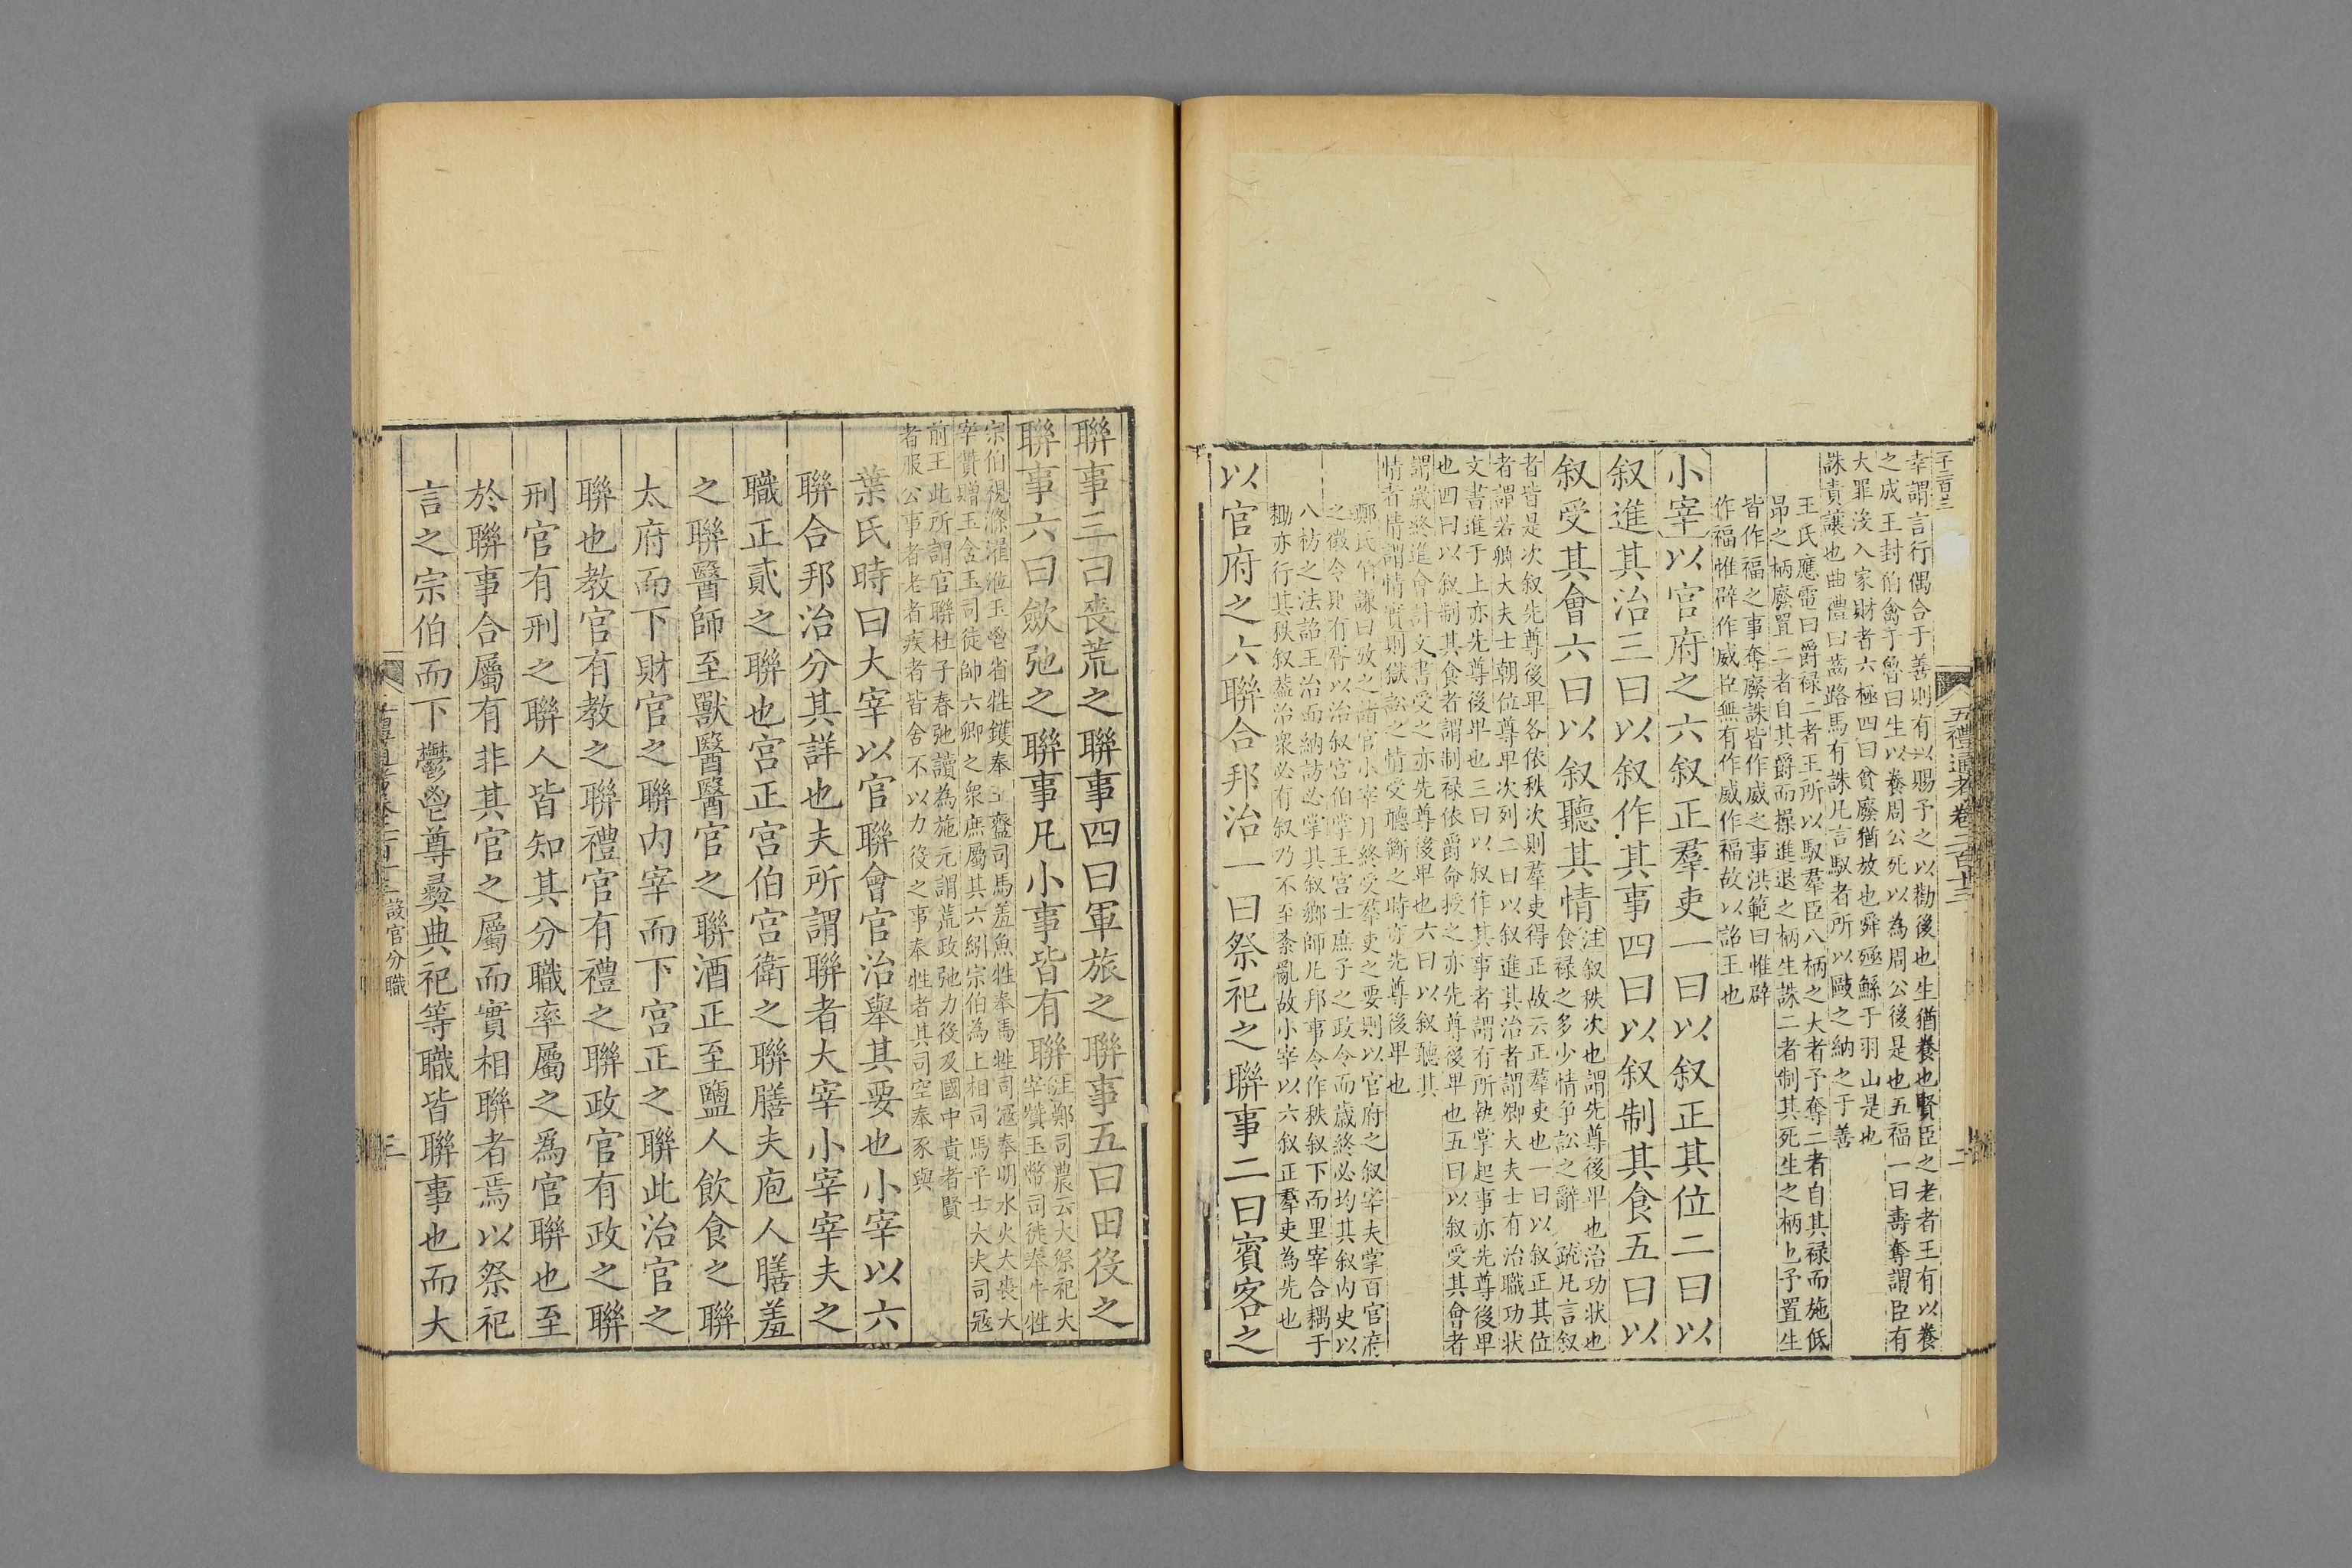 五禮通考卷二百十三
二
幸謂言行偶合于善則有以賜予之以勸後也生猶養也賢臣之老者王有以養
之成王封伯禽于魯曰生以養周公死以為周公後是也五福一曰壽奪謂臣有
大罪沒入家財者六極四曰貧廢猶放也舜殛鯀于羽山是也
誅責讓也曲禮曰齒路馬有誅凡言馭者所以敺之納之于善
王氏應電曰爵祿二者王所以馭羣臣八柄之大者予奪二者自其祿而施低
昂之柄廢置二者自其爵而操進退之柄生誅二者制其死生之柄也予置生
皆作福之事奪廢誅皆作威之事洪範曰惟辟
作福惟辟作威臣無有作威作福故以詔王也
小宰以官府之六叙正羣吏一曰以叙正其位二曰以
叙進其治三曰以叙作其事四曰以叙制其食五曰以
叙受其會六曰以叙聽其情
注叙秩次也謂先尊後卑也治功状也
食祿之多少情爭訟之辭 疏凡言叙
者皆是次叙先尊後卑各依秩次則羣吏得正故云正羣吏也一曰以叙正其位
者謂若卿大夫士朝位尊卑次列二曰以叙進其治者謂卿大夫士有治職功状
文書進于上亦先尊後卑也三曰以叙作其事者謂有所執掌起事亦先尊後卑
也四曰以叙制其食者謂制祿依爵命授之亦先尊後卑也五曰以叙受其會者
謂歲終進會計文書受之亦先尊後卑也六曰以叙聽其
情者情謂情實則獄訟之情受聽斷之時亦先尊後卑也
鄭氏伯謙曰攷之諸官小宰月終受羣吏之要則以官府之叙宰夫掌百官府
之徵令則有胥以治叙宮伯掌王宮士庶子之政令而歲終必均其叙內史以
八枋之法詔王治而納訪必掌其叙鄉師凡邦事令作秩叙下而里宰合耦于
耡亦行其秩叙葢治衆必有叙乃不至紊亂故小宰以六叙正羣吏為先也
以官府之六聯合邦治一曰祭祀之聯事二曰賓客之
聯事三曰喪荒之聯事四曰軍旅之聯事五曰田役之
聯事六曰斂弛之聯事凡小事皆有聯
注鄭司農云大祭祀大
宰贊玉幣司徒奉牛牲
宗伯視滌濯涖玉鬯省牲鑊奉玉齍司馬羞魚牲奉馬牲司寇奉明水火大喪大
宰贊贈玉含玉司徒帥六卿之衆庶屬其六紖宗伯為上相司馬平士大夫司寇
前王此所謂官聯杜子春弛讀為施元謂荒政弛力役及國中貴者賢
者服公事者老者疾者皆舍不以力役之事奉牲者其司空奉豕與
葉氏時曰大宰以官聯會官治舉其要也小宰以六
聯合邦治分其詳也夫所謂聯者大宰小宰宰夫之
職正貳之聯也宮正宮伯宮衛之聯膳夫庖人膳羞
之聯醫師至獸醫醫官之聯酒正至鹽人飲食之聯
太府而下財官之聯内宰而下宮正之聯此治官之
聯也教官有教之聯禮官有禮之聯政官有政之聯
刑官有刑之聯人皆知其分職率屬之爲官聯也至
於聯事合屬有非其官之屬而實相聯者焉以祭祀
言之宗伯而下鬱鬯尊彝典祀等職皆聯事也而大
設官分職
三